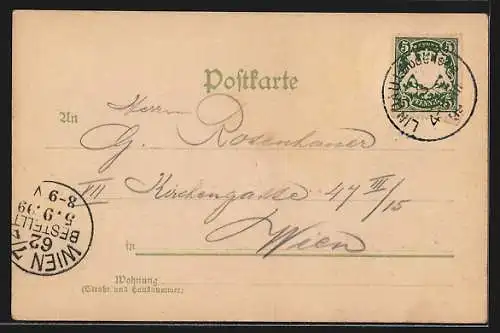 5 5
BAYERN
PFENNIG
LINDAU
Postkarte
An Herrn
G. Rosenhauer
VII Kirchengasse 47 III/15
in Wien
Wohnung
(Straße und Hausnummer)
WIEN 7/1
62
BESTELLT
5.9.99
8-9 V